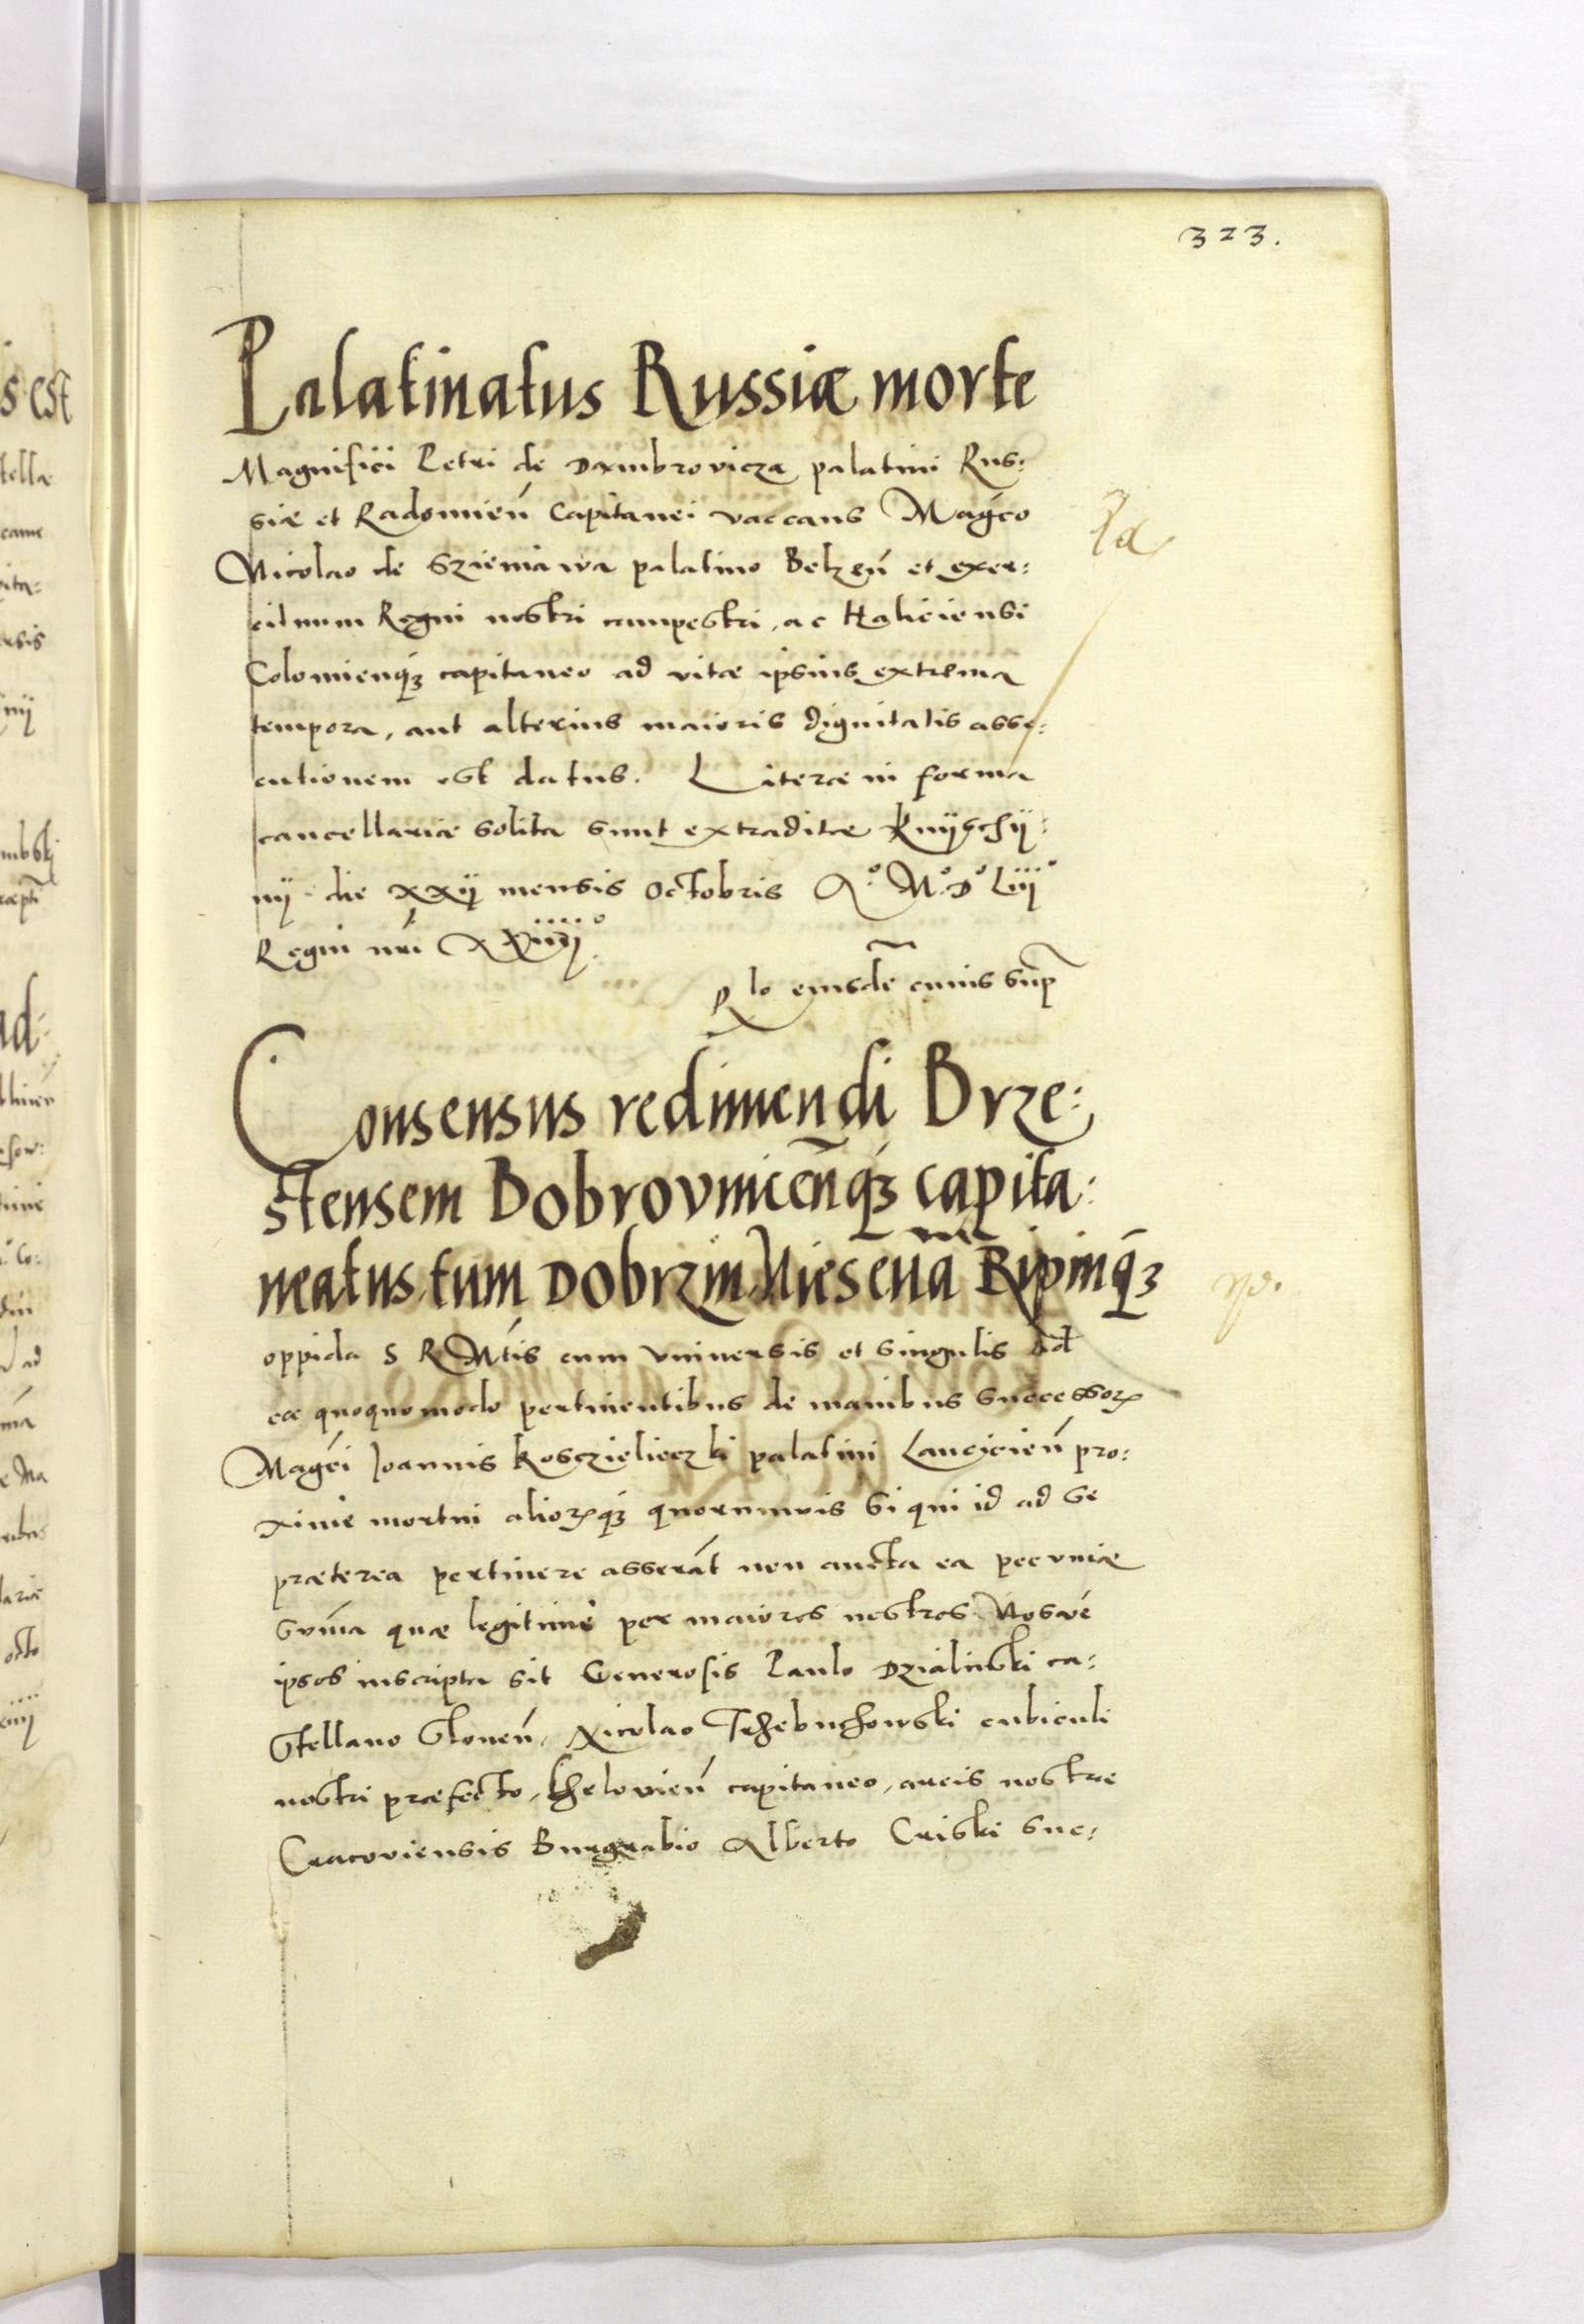 323.
Palatinatus Russiæ morte
Magnifici Petri de Dambrovicza palatini Rus:
siæ et Radomień Capitanei vaccans Magco
Nicolao de Szieniawa palatino Belzeń et exer:
cituum Regni nostri campestri, ac Haliciensi
Colomienqȝ capitaneo ad vitæ ipsius extrema
tempora, aut alterius maioris dignitatis asse:
cutionem est datus. Literæ in forma
cancellariæ solita sunt extraditæ Knyschij:
nij die xxij mensis Octobris Aº. Mº. Dº Liijº
Regni nri XXiiijº.
eiusdē cuius sup
Consensus redimendi Brze:
stensem Bobrovnicen̄qȝ capita:
neatus, tum Dobrzin, Niesevia Ripinqȝ
oppida S R Mtis cum vniversis et singulis ad
ea quoquomodo pertinentibus de manibus successorꝝ
Magci Joannis Kosczieliecȥki palatini Lancicień pro:
xime mortui aliorꝝqȝ quorumvis si qui id ad se
præterea pertinere asserāt non aucta ea pecuniæ
sum̄a quæ legitime per maiores nostros Nosvé
ipsos inscripta sit Generosis Paulo Dzialinski ca:
stellano Sloneń, Nicolao Trzebuchowski cubiculi
nostri præfecto, capitaneo, arcis nostræ
Cracoviensis Burgrabio Alberto Criski suc: